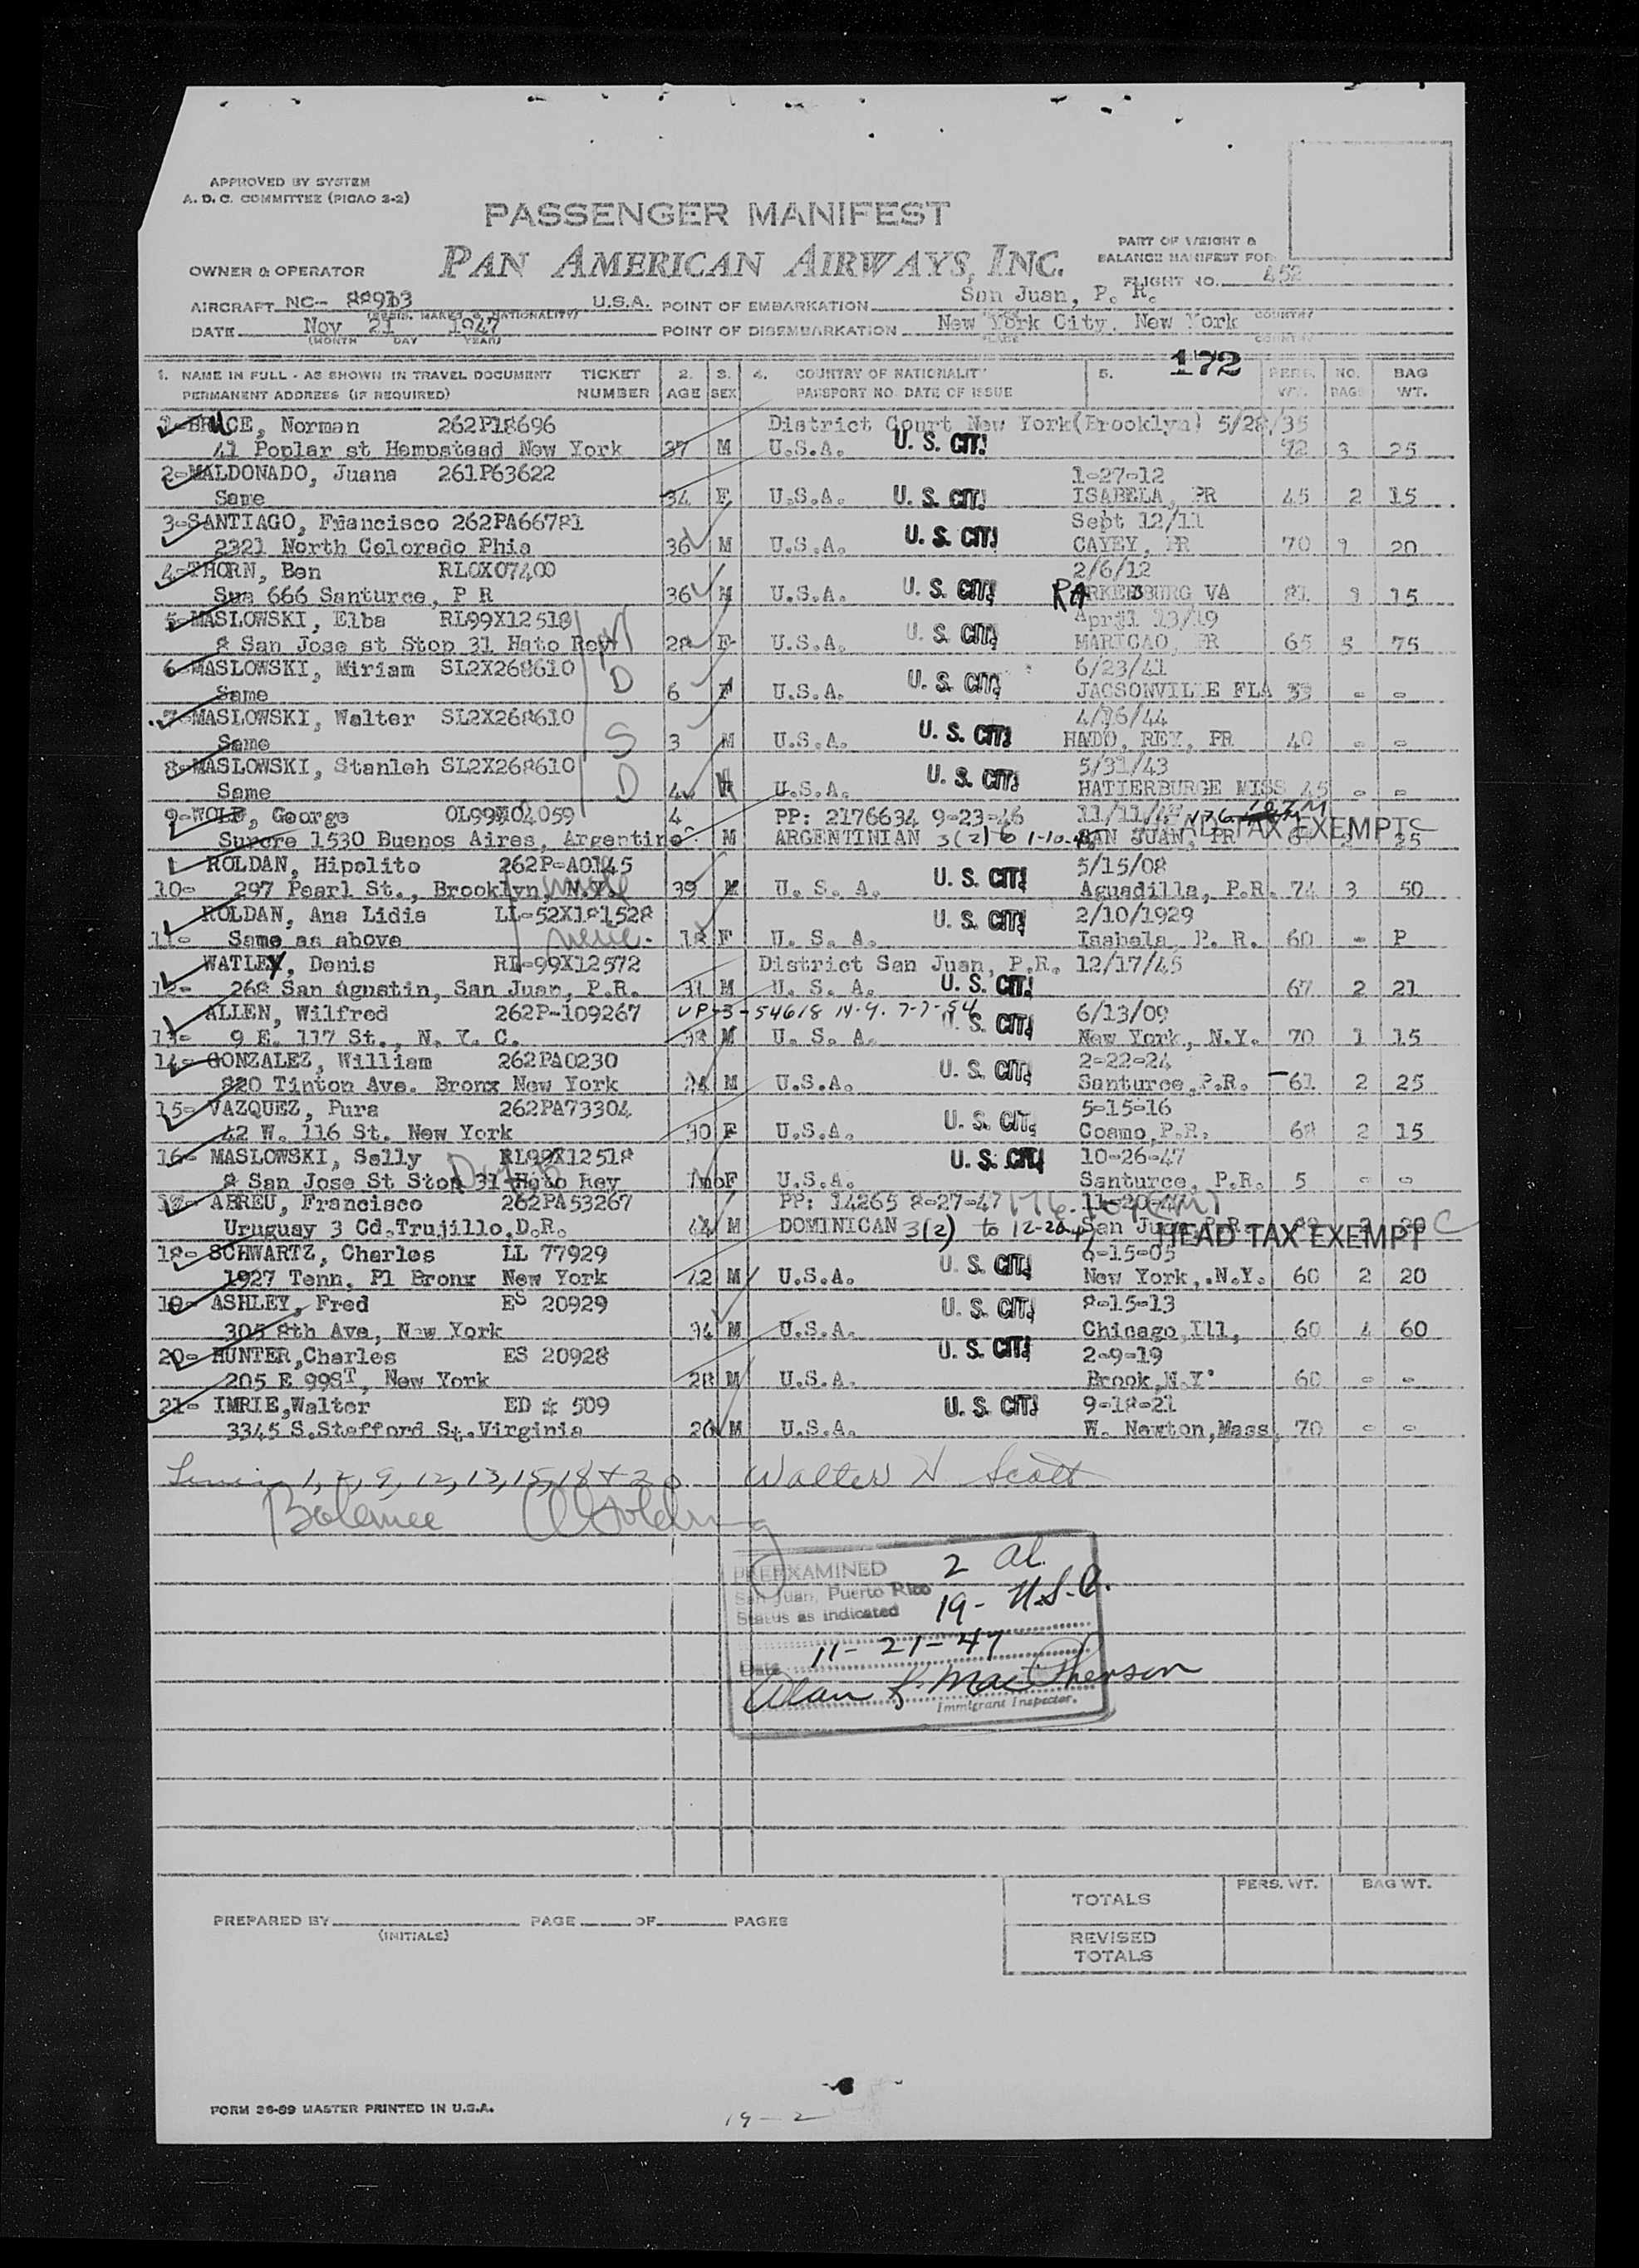 APPROVED BY SYSTEM
A. D. C. COMMITTEE (PICAO 2-2)
PASSENGER MANIFEST
PAN AMERICAN AIRWAYS, INC.
PART OF WEIGHT &
BALANCE MANIFEST FOR
OWNER & OPERATOR
FLIGHT NO. 452
AIRCRAFT NC- 88913 U.S.A. POINT OF EMBARKATION San Juan, P. R.
DATE Nov 21 1947 POINT OF DISEMBARKATION New York City, New York
(MONTH DAY YEAR) PLACE COUNTRY
172
1. NAME IN FULL - AS SHOWN IN TRAVEL DOCUMENT TICKET 2. 3. 4. COUNTRY OF NATIONALITY 5. PERS. NO. BAG
PERMANENT ADDRESS (IF REQUIRED) NUMBER AGE SEX PASSPORT NO. DATE OF ISSUE WT. BAGS WT.
BRUCE, Norman 262P18696 District Court New York(Brooklyn) 5/28/35
41 Poplar st Hempstead New York 37 M U.S.A. U. S. CIT. 92 3 25
2-MALDONADO, Juana 261P63622 1-27-12
Same 34 F U.S.A. U. S. CIT. ISABELA, PR 45 2 15
3-SANTIAGO, Francisco 262PA66781 Sept 12/11
2321 North Colorado Phia 36 M U.S.A. U. S. CIT. CAYEY, PR 70 20
4-THORN, Ben RLOX07400 2/6/12
Sua 666 Santurce, P R 36 M U.S.A. U. S. CIT. VA 81 15
5-MASLOWSKI, Elba RL99X12518 April 13/19
8 San Jose st Stop 31 Hato Rey 28 F U.S.A. U. S. CIT. MARICAO, PR 65 5 75
6-MASLOWSKI, Miriam SL2X268610 D 6/23/41
Same 6 F U.S.A. U. S. CIT. JACSONVILLE FLA 33 - -
7-MASLOWSKI, Walter SL2X268610 S 4/ 6/44
Same 3 M U.S.A. U. S. CIT. HADO, REY, PR 40 - -
8-MASLOWSKI, Stanleh SL2X268610 D 5/31/43
Same 4 U.S.A. U. S. CIT. HATIERBURGE MISS 45 - -
9-WOLF, George OL99X04059 4 PP: 2176634 9-23-46
Surcre 1530 Buenos Aires, Argentine M ARGENTINIAN 3(2) SAN JUAN, PR TAX EXEMPT 25
ROLDAN, Hipolito 262P-A0145 5/15/08
10- 297 Pearl St., Brooklyn, N.Y. 39 M U. S. A. U. S. CIT. Aguadilla, P.R. 74 3 50
ROLDAN, Ana Lidia LL-52X181528 2/10/1929
11- Same as above 18 F U. S. A. U. S. CIT. Isabela, P. R. 60 - P
WATLEY, Denis RL-99X12572 District San Juan, P.R. 12/17/45
12- 268 San Agustin, San Juan, P.R. 31 M U. S. A. U. S. CIT. 67 2 21
ALLEN, Wilfred 262P-109267 6/13/09
13- 9 E. 117 St., N. Y. C. 38 M U. S. A. U. S. CIT. New York, N.Y. 70 1 15
14- GONZALEZ, William 262PA0230 2-22-24
820 Tinton Ave. Bronx New York 24 M U.S.A. U. S. CIT. Santurce,P.R. 61 2 25
15- VAZQUEZ, Pura 262PA73304 5-15-16
42 W. 116 St. New York 30 F U.S.A. U. S. CIT. Coamo,P.R. 68 2 15
16- MASLOWSKI, Selly RL99X12518 10-26-47
8 San Jose St Stop 31-Hato Rey 1moF U.S.A. U. S. CIT. Santurce, P.R. 5 - -
17- ABREU, Francisco 262PA53267 PP: 14265 8-27-47 11-20-47
Uruguay 3 Cd.Trujillo,D.R. 44 M DOMINICAN 3(2) to San Juan HEAD TAX EXEMPT C
18- SCHWARTZ, Charles LL 77929 6-15-05
1927 Tenn. Pl Bronx New York 42 M U.S.A. U. S. CIT. New York,.N.Y. 60 2 20
19- ASHLEY, Fred ES 20929 8-15-13
305 8th Ave, New York 34 M U.S.A. U. S. CIT. Chicago,Ill, 60 4 60
20- HUNTER,Charles ES 20928 2-9-19
205 E 99ST, New York 28 M U.S.A. U. S. CIT. Brook,N.Y. 60 - -
21- IMRIE,Walter ED 509 9-18-21
3345 S.Stafford St.Virginia 26 M U.S.A. U. S. CIT. W. Newton,Mass 70 - -
1, 2, 9, 12, 13, 15, 18 + 20 Walter H Scott
Balance
PREEXAMINED 2 al.
San Juan, Puerto Rico
Status as indicated 19- U.S.C.
Date 11-21-47
Alan MacPherson
Immigrant Inspector.
PERS. WT. BAG WT.
TOTALS
PREPARED BY PAGE OF PAGES
(INITIALS)
REVISED
TOTALS
FORM 26-59 MASTER PRINTED IN U.S.A.
19-2